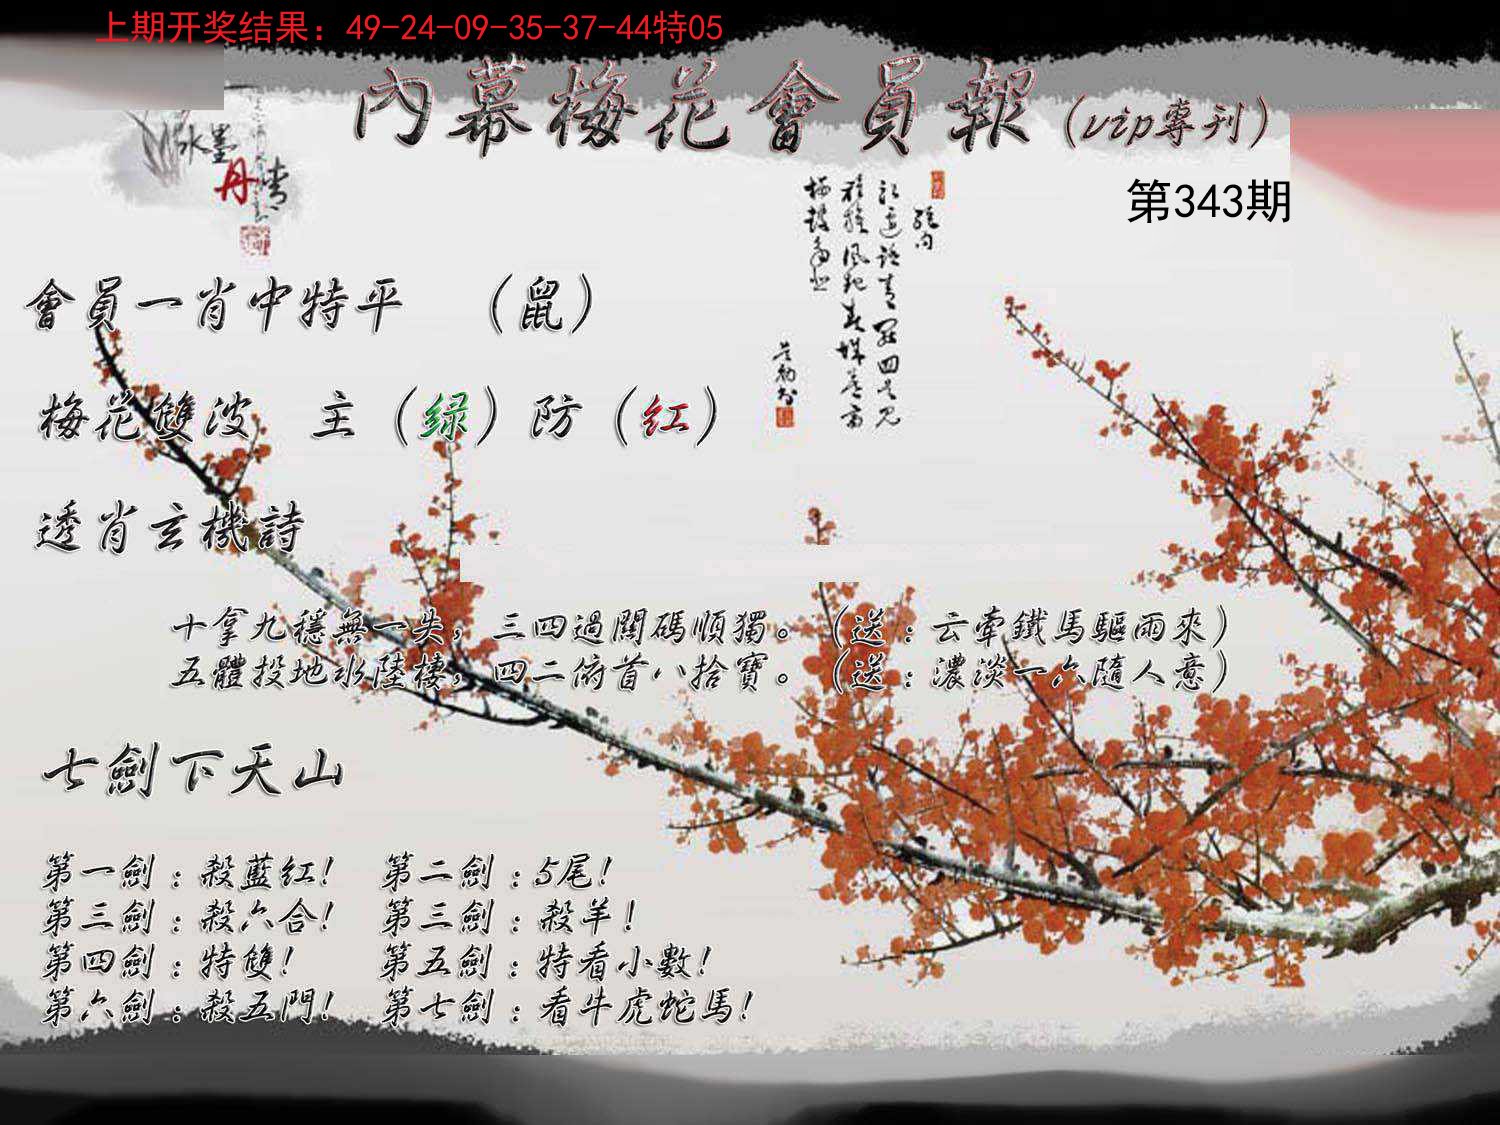 上期开奖结果：49-24-09-35-37-44特05
內幕梅花會員報（vip專刊）
水墨
丹青
第343期
會員一肖中特平 （鼠）
梅花雙波 主（绿）防（红）
透肖玄機詩
十拿九穩無一失，三四過關碼順獨。（送：云牽鐵馬驅雨來）
五體投地水陸棲，四二俯首八拾寶。（送：濃淡一六隨人意）
七劍下天山
第一劍：殺藍红！ 第二劍：5尾！
第三劍：殺六合！ 第三劍：殺羊！
第四劍：特雙！ 第五劍：特看小數！
第六劍：殺五門！ 第七劍：看牛虎蛇馬！